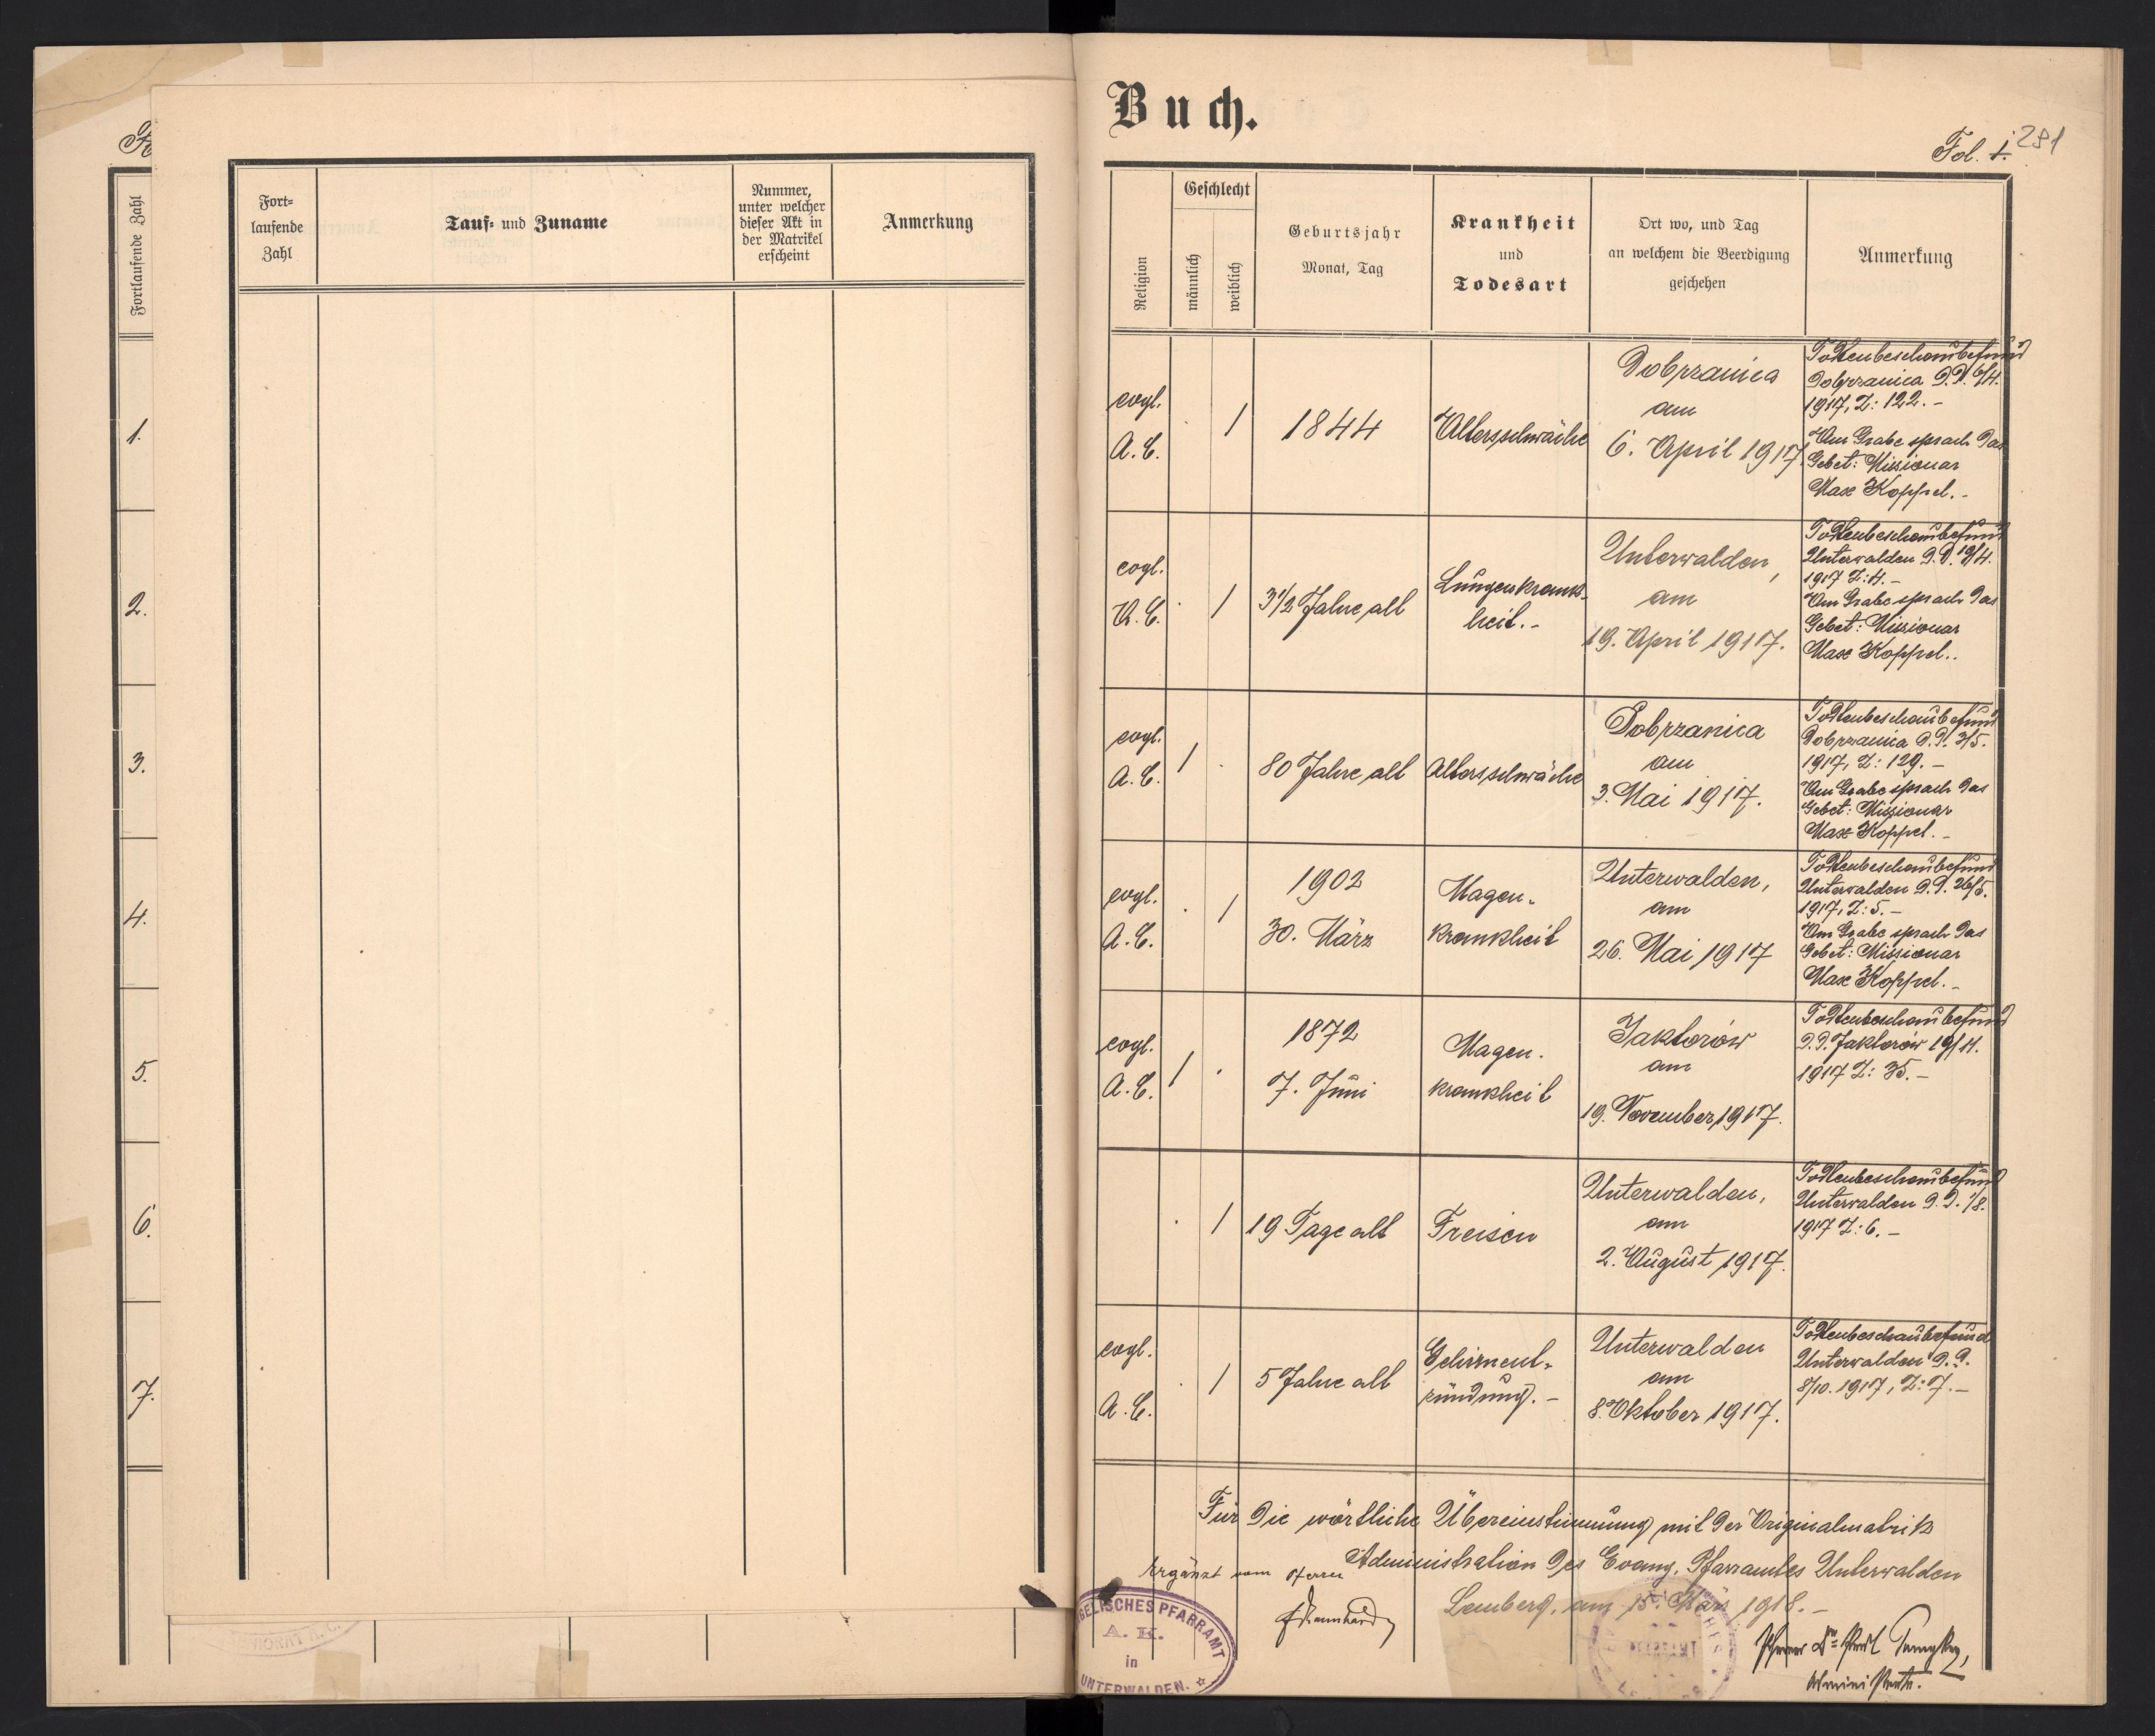 Fortlaufende Zahl
1.
2.
3.
4.
5.
6.
7.
Fort-
laufende
Zahl
Tauf- und Zuname
Nummer,
unter welcher
dieser Akt in
der Matrikel
erscheint
Anmerkung
Buch.
Fol. 1. 291
Religion
Geschlecht
männlich
weiblich
Geburtsjahr
Monat, Tag
Krankheit
und
Todesart
Ort wo, und Tag
an welchem die Beerdigung
geschehen
Anmerkung
evgl.
A.C.
1
1844
Altersschwäche
Dobrzanica
am
6. April 1917.
Todtenbeschaubefund
Dobrzanica d.d. 6/4.
1917, Z: 122.-
Am Grabe sprach das
Gebet: Missionar
Max Koppel.-
evgl.
A.C.
1
3 1/2 Jahre alt
Lungenkrank-
heit.-
Unterwalden,
am
19. April 1917.
Todtenbeschaubefund
Unterwalden d.d. 19/4.
1917 Z: 4.-
Am Grabe sprach das
Gebet: Missionar
Max Koppel..
evgl.
A.C.
1
80 Jahre alt
Altersschwäche
Dobrzanica
am
3. Mai 1917.
Todtenbeschaubefund
Dobrzanica d.d. 3/5.
1917, Z: 129.-
Am Grabe sprach das
Gebet: Missionar
Max Koppel.-
evgl.
A.C.
1
1902
30. März
Magen-
krankheit
Unterwalden,
am
26. Mai 1917
Todtenbeschaubefund
Unterwalden d.d. 26/5.
1917, Z: 5.-
Am Grabe sprach das
Gebet: Missionar
Max Koppel.-
evgl.
A.C.
1
1872
7. Juni
Magen-
krankheit
Jaktorów
am
19. November 1917.
Todtenbeschaubefund
d.d. Jaktorów 19/11.
1917 Z: 35.-
1
19 Tage alt
Freisen
Unterwalden,
am
2. August 1917.
Todtenbeschaubefund
Unterwalden d.d. 1/8.
1917 Z: 6.-
evgl.
A.C.
1
5 Jahre alt
Gehirnent-
zündung.-
Unterwalden
am
8. Oktober 1917.
Todtenbeschaubefund
Unterwalden d.d.
8/10. 1917, Z: 7.-
Für die wörtliche Übereinstimmung mit der Originalmatrik
Ergänzt vom Herrn Administration des Evang. Pfarramtes Unterwalden
Lemberg, am 15. März 1918.-
GELISCHES PFARRAMT
A. H.
in
UNTERWALDEN.
Pfarrer Dr.